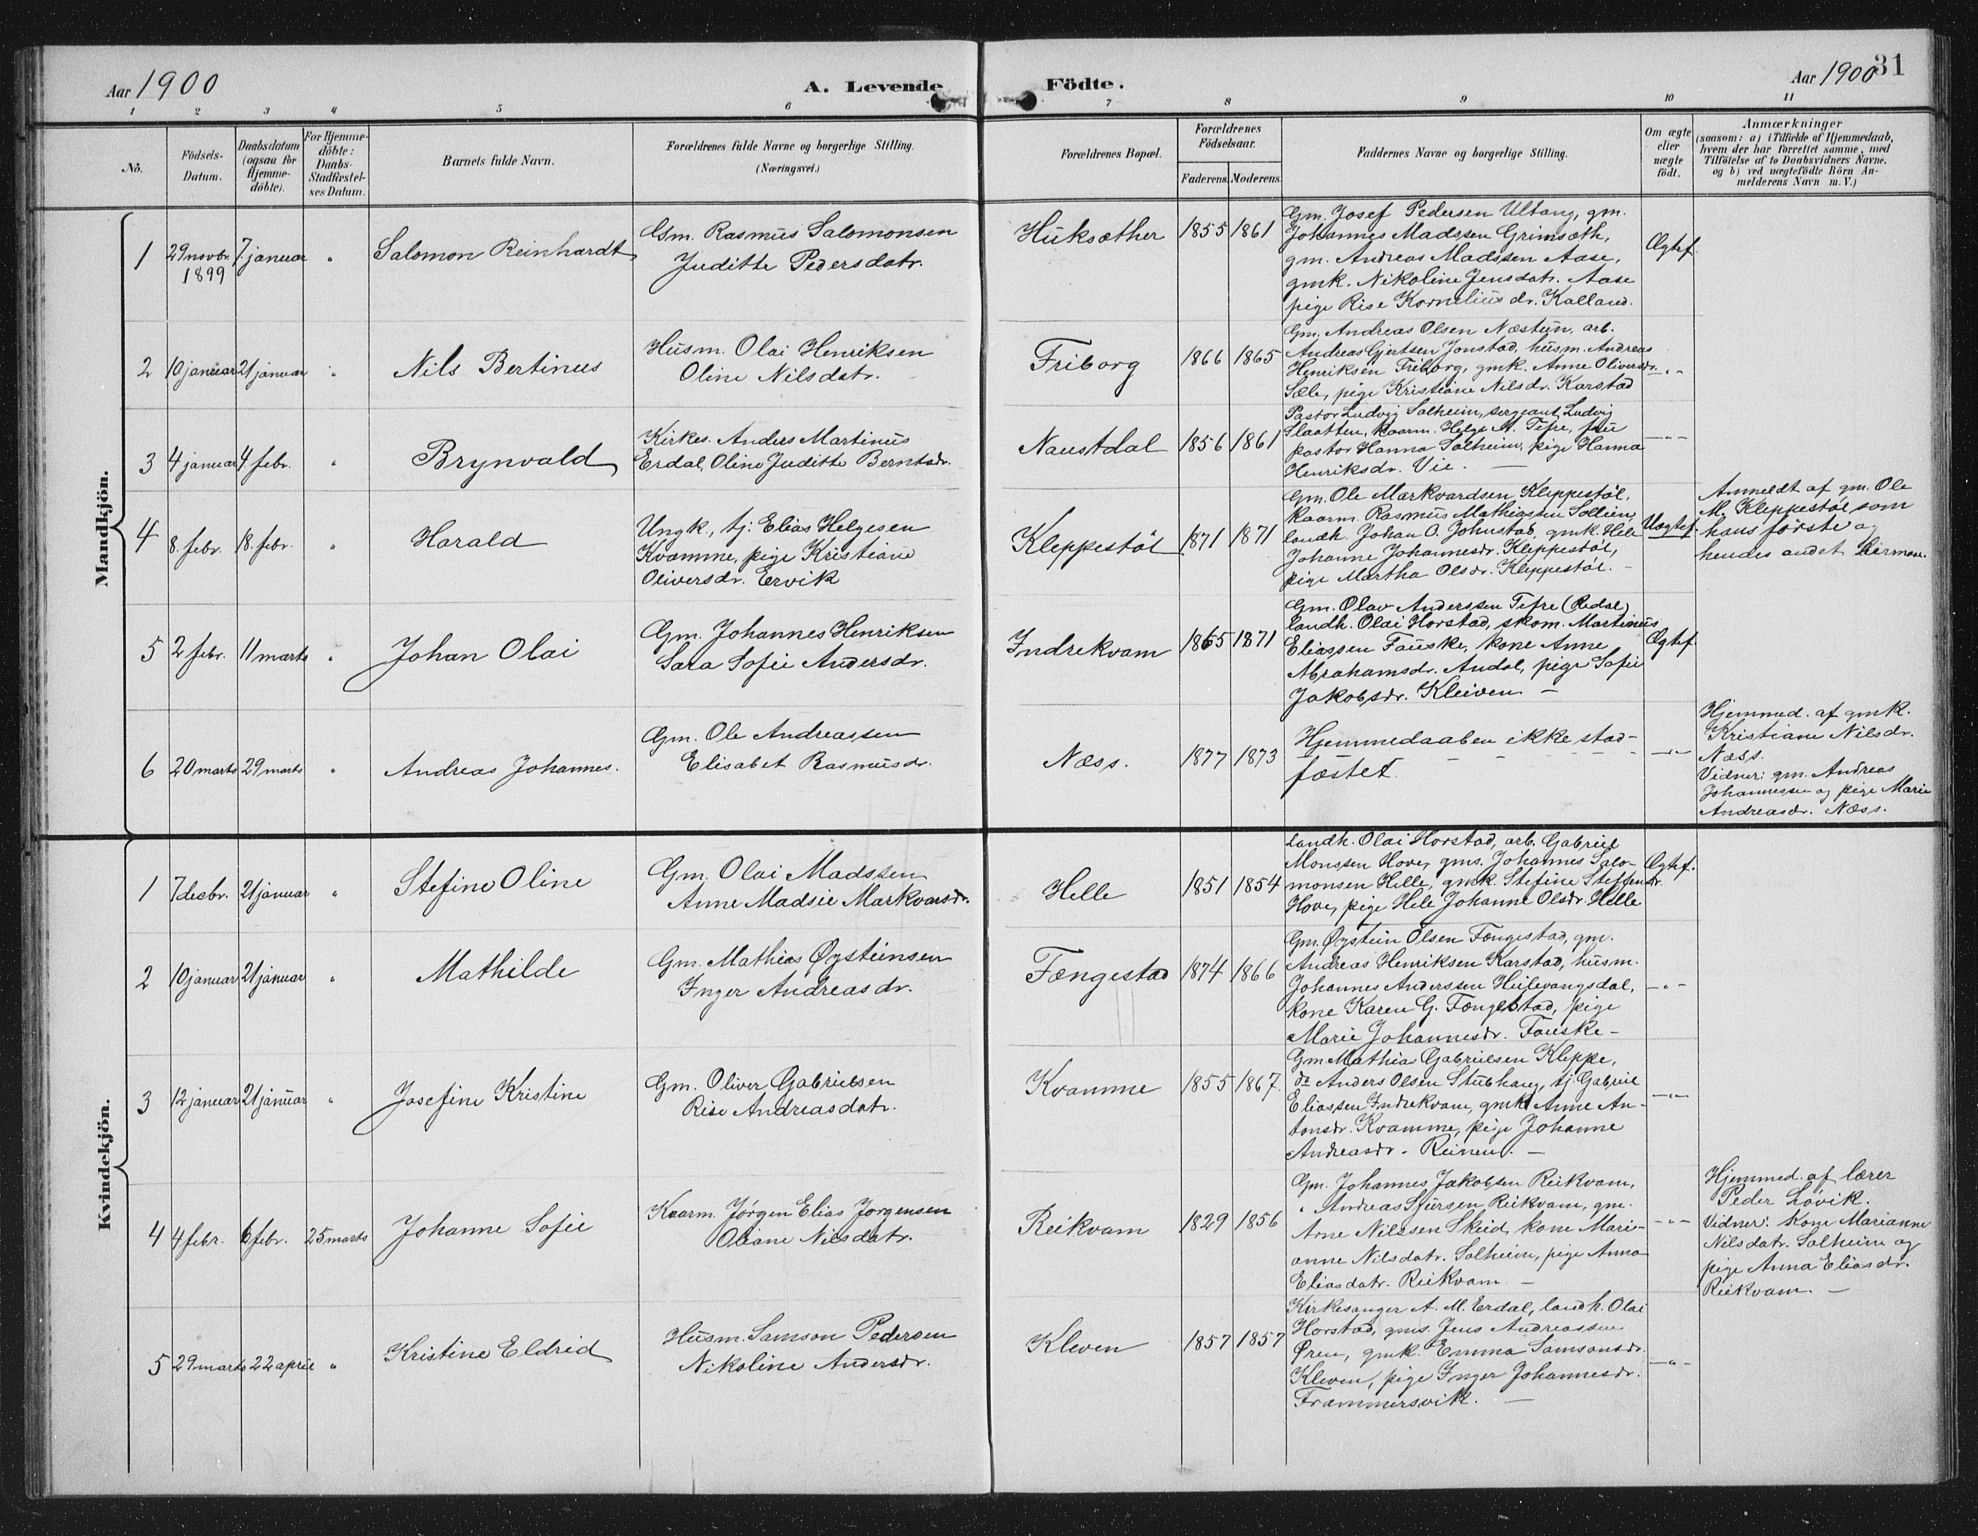 Aar 1900
A. Levende
Födte.
Aar 1900
31
1 2 3 4 5 6 7 8 9 10 11
No.
Födsels-
Datum.
Daabsdatum
(ogsaa for
Hjemme-
döbte).
For Hjemme-
döbte:
Daabs-
Stadfæstel-
ses Datum.
Barnets fulde Navn.
Forældrenes fulde Navne og borgerlige Stilling.
(Næringsvei.)
Forældrenes Bopæl.
Forældrenes
Födselsaar.
Faderens. Moderens.
Faddernes Navne og borgerlige Stilling.
Om ægte
eller
uægte
födt.
Anmærkninger
(saasom: a) i Tilfælde af Hjemmedaab,
hvem der har forrettet samme, med
Tilföielse af to Daabsvidners Navne,
og b) ved uægtefödte Börn An-
melderens Navn m. V.)
Mandkjön.
1
29 novbr.
1899
7. januar
"
Salomon Reinhardt
Gm. Rasmus Salomonsen
Juditte Pedersdatr.
Huksæther
1855
1861
Gm. Josef Pedersen Ultang, gm.
Johannes Madssen Grimsæth,
gm. Andreas Madssen Aase,
gmk. Nikoline Jensdatr. Aase
pige Rise Korneliusdr. Kalland.
Ægtef.
2
10 januar
21 januar
"
Nils Bertinus
Husm. Olai Henriksen
Oline Nilsdatr.
Friborg
1866
1865
Gm. Andreas Olsen Næstun, arb.
Andreas Gjertsen Jonstad, husm. Andreas
Henriksen Friborg, gmk. Anne Oliversdr.
Sæle, pige Kristiane Nilsdr. Karstad
-"-
3
4 januar
4. febr.
"
Brynvald
Kirkes. Anders Martinus
Erdal, Oline Juditte Berntsdr.
Naustdal
1856
1861
Pastor Ludvig Solheim, sergeant Ludvig
Slaatten, kaarm. Helge A. Tefre, fru
pastor Hanna Solheim, pige Hanna
Henriksdr. Vie. -
-"-
4
8. febr.
18. febr.
"
Harald
Ungk., tj: Elias Helgesen
Kvamme, pige Kristiane
Oliversdr. Ervik
Kleppestøl
1871
1871
Gm. Ole Markvardsen Kleppestøl,
kaarm. Rasmus Mathiassen Solheim,
landh. Johan O. Johnstad, gmk. Hele
Johanne Johannesdr. Kleppestøl,
pige Martha Olsdr. Kleppestøl. -
Uægtef.
Anmeldt af gm. Ole
M. Kleppestøl som
hans første og
hendes andet leirmaal.
5
2 febr.
11 marts
"
Johan Olai
Gm. Johannes Henriksen
Sara Sofie Andersdr.
Indrekvam
1865
1871
Gm. Olav Anderssen Tefre (Redal)
landh. Olai Horstad, skom. Martinus
Eliassen Fauske, kone Anne
Abrahamsdr. Andal, pige Sofie
Jakobsdr. Kleiven -
Ægtef.
6
20 marts
29 marts
"
Andreas Johannes.
Gm. Ole Andreassen
Elisabet Rasmusdr.
Næss.
1877
1873
Hjemmedaaben ikke stad-
fæstet.
-"-
Hjemmed. af gmk.
Kristiane Nilsdr.
Næss.
Vidner: gm. Andreas
Johannessen og pige Marie
Andreasdr. Næss.
Kvindekjön.
1
7 decbr.
21 januar
"
Stefine Oline
Gm. Olai Madssen
Anne Madsie Markvarsdr.
Helle
1851
1854
Landh. Olai Horstad, arb. Gabriel
Monssen Hove, gms. Johannes Salo-
monsen Helle, gmk. Stefine Steffensdr.
Hove, pige Hele Johanne Olsdr. Helle
Ægtef.
2
10 januar
21 januar
"
Mathilde
Gm. Mathias Øysteinsen
Inger Andreasdr.
Fængestad
1874
1866
Gm. Øystein Olsen Fængestad, gm.
Andreas Henriksen Karstad, husm.
Johannes Anderssen Heilevangsdal,
kone Karen G. Fængestad, pige
Marie Johannesdr. Fauske -
-"-
3
12 januar
21 januar
"
Josefine Kristine
Gm. Oliver Gabrielsen
Rise Andreasdatr.
Kvamme
1855
1867
Gm Mathias Gabrielsen Kleppe,
do Anders Olsen Stubhaug, tj. Gabriel
Eliassen Indrekvam, gmk Anne An-
tonsdr. Kvamme, pige Johanne
Andreasdr. Reinen. -
-"-
4
4 febr.
6 febr.
25 marts
Johanne Sofie
Kaarm. Jørgen Elias Jørgensen
Oliane Nilsdatr.
Reikvam
1829
1856
Gm. Johannes Jakobsen Reikvam,
" Andreas Sjursen Reikvam, gm.
Arne Nilssen Skeid, kone Mari-
anne Nilsdatr. Solheim, pige Anna
Eliasdatr. Reikvam. -
-"-
Hjemmed. af lærer
Peder Løvik.
Vidner: Kone Marianne
Nilsdatr. Solheim og
pige Anna Eliasdr.
Reikvam. -
5
29 marts
22 april
"
Kristine Eldrid
Husm. Samson Pedersen
Nikoline Andersdr.
Kleven
1857
1857
Kirkesanger A. M. Erdal, landh. Olai
Horstad, gms. Jens Andreassen
Øren, gmk. Emma Samsonsdr.
Kleven, pige Inger Johannesdr.
Frammersvik. -
-"-